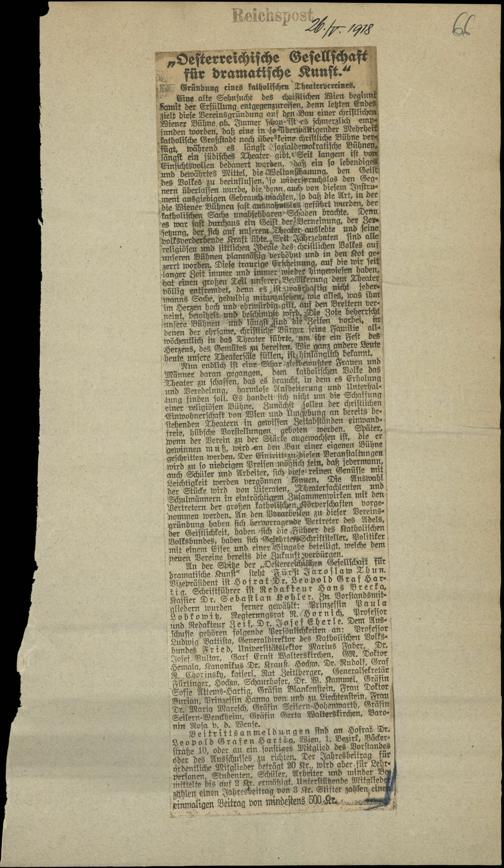 Reichspost
26./V. 1918
66
„Oesterreichische Gesellschaft
für dramatische Kunst.“
Gründung eines katholischen Theatervereines.
Eine alte Sehnsucht des christlichen Wien beginnt
damit der Erfüllung entgegenzureifen, denn letzten Endes
zielt diese Vereinsgründung auf den Bau einer christlichen
Wiener Bühne ab. Immer schon ist es schmerzlich emp-
funden worden, daß eine in so überwältigender Mehrheit
katholische Großstadt noch über keine christliche Bühne ver-
fügt, während es längst sozialdemokratische Bühnen,
längst ein jüdisches Theater gibt. Seit langem ist von
Einsichtsvollen bedauert worden, daß ein so lebendiges
und bewährtes Mittel, die Weltanschauung, den Geist
des Volkes zu beeinflussen, so widerspruchslos den Geg-
nern überlassen wurde, die denn auch von diesem Instru-
ment ausgiebigen Gebrauch machten, so daß die Art, in der
die Wiener Bühnen fast ausnahmslos geführt wurden, der
katholischen Sache unabsehbaren Schaden brachte. Denn
es war fast durchaus ein Geist der Verneinung, der Zer-
setzung, der sich auf unserem Theater auslebte und seine
volksverderbende Kraft übte. Seit Jahrzehnten sind alle
religiösen und sittlichen Ideale des christlichen Volkes auf
unseren Bühnen planmäßig verhöhnt und in den Kot ge-
zerrt worden. Diese traurige Erscheinung, auf die wir seit
langer Zeit immer und immer wieder hingewiesen haben,
hat einen großen Teil unserer Bevölkerung dem Theater
völlig entfremdet, denn es ist wahrhaftig nicht jeder-
manns Sache, geduldig mitanzusehen, wie alles, was ihm
im Herzen hoch und ehrwürdig gilt, auf den Brettern ver-
neint, bewitzelt und beschimpft wird. Die Zote beherrscht
unsere Bühnen und längst sind die Zeiten vorbei, in
denen der ehrsame, christliche Bürger seine Familie all-
wöchentlich in das Theater führte, um ihr ein Fest des
Herzens, des Gemütes zu bereiten. Wie ganz andere Leute
heute unsere Theatersäle füllen, ist hinlänglich bekannt.
Nun endlich ist eine Schar zielbewußter Frauen und
Männer daran gegangen, dem katholischen Volke das
Theater zu schaffen, das es braucht, in dem es Erholung
und Veredelung, harmlose Aufheiterung und Unterhal-
tung finden soll. Es handelt sich nicht um die Schaffung
einer religiösen Bühne. Zunächst sollen der christlichen
Einwohnerschaft von Wien und Umgebung an bereits be-
stehenden Theatern in gewissen Zeitabständen einwand-
freie, hübsche Vorstellungen geboten werden. Später,
wenn der Verein zu der Stärke angewachsen ist, die er
gewinnen muß, wird an den Bau einer eigenen Bühne
geschritten werden. Der Eintritt zu diesen Veranstaltungen
wird zu so niedrigen Preisen möglich sein, daß jedermann,
auch Schüler und Arbeiter, sich diese reinen Genüsse mit
Leichtigkeit werden vergönnen können. Die Auswahl
der Stücke wird von Literaten, Theaterfachleuten und
Schulmännern in einträchtigem Zusammenwirken mit den
Vertretern der großen katholischen Körperschaften vorge-
nommen werden. An den Vorarbeiten zu dieser Vereins-
gründung haben sich hervorragende Vertreter des Adels,
der Geistlichkeit, haben sich die Führer des Katholischen
Volksbundes, haben sich Gelehrte, Schriftsteller, Politiker
mit einem Eifer und einer Hingabe beteiligt, welche dem
neuen Vereine bereits die Zukunft verbürgen.
An der Spitze der „Oesterreichischen Gesellschaft für
dramatische Kunst“ steht Fürst Jaroslaw Thun.
Vizepräsident ist Hofrat Dr. Leopold Graf Har-
tig, Schriftführer ist Redakteur Hans Brecka,
Kassier Dr. Sebastian Kohler. Zu Vorstandsmit-
gliedern wurden ferner gewählt: Prinzessin Paula
Lobkowitz, Regierungsrat R. Hornich, Professor
und Redakteur Zeif, Dr. Josef Eberle. Dem Aus-
schusse gehören folgende Persönlichkeiten an: Professor
Ludwig Battista, Generaldirektor des Katholischen Volks-
bundes Fried, Universitätslektor Marius Faber, Dr.
Josef Bultor, Graf Ernst Walterskirchen, GR. Doktor
Hemala, Kanonikus Dr. Krauß, Hochw. Dr. Rudolf, Graf
K. Chorinsky, kaiserl. Rat Zeitlberger, Generalsekretär
Färlinger, Hochw. Schaurhofer, Dr. W. Kammel, Gräfin
Sofie Attems-Hartig, Gräfin Blankenstein, Frau Doktor
Burian, Prinzessin Hanna von und zu Liechtenstein, Frau
Dr. Maria Maresch, Gräfin Seilern-Hohenwarth, Gräfin
Seilern-Wenckheim, Gräfin Gerta Walterskirchen, Baro-
nin Rosa v. d. Wense.
Beitrittsanmeldungen sind an Hofrat Dr.
Leopold Grafen Hartig, Wien, 1. Bezirk, Bäcker-
straße 10, oder an ein sonstiges Mitglied des Vorstandes
oder des Ausschusses zu richten. Der Jahresbeitrag für
ordentliche Mitglieder beträgt 20 Kr., wird aber für Lehr-
personen, Studenten, Schüler, Arbeiter und minder Be-
mittelte bis auf 2 Kr. ermäßigt. Unterstützende Mitglieder
zahlen einen Jahresbeitrag von 3 Kr. Stifter zahlen einen
einmaligen Beitrag von mindestens 500 Kr.